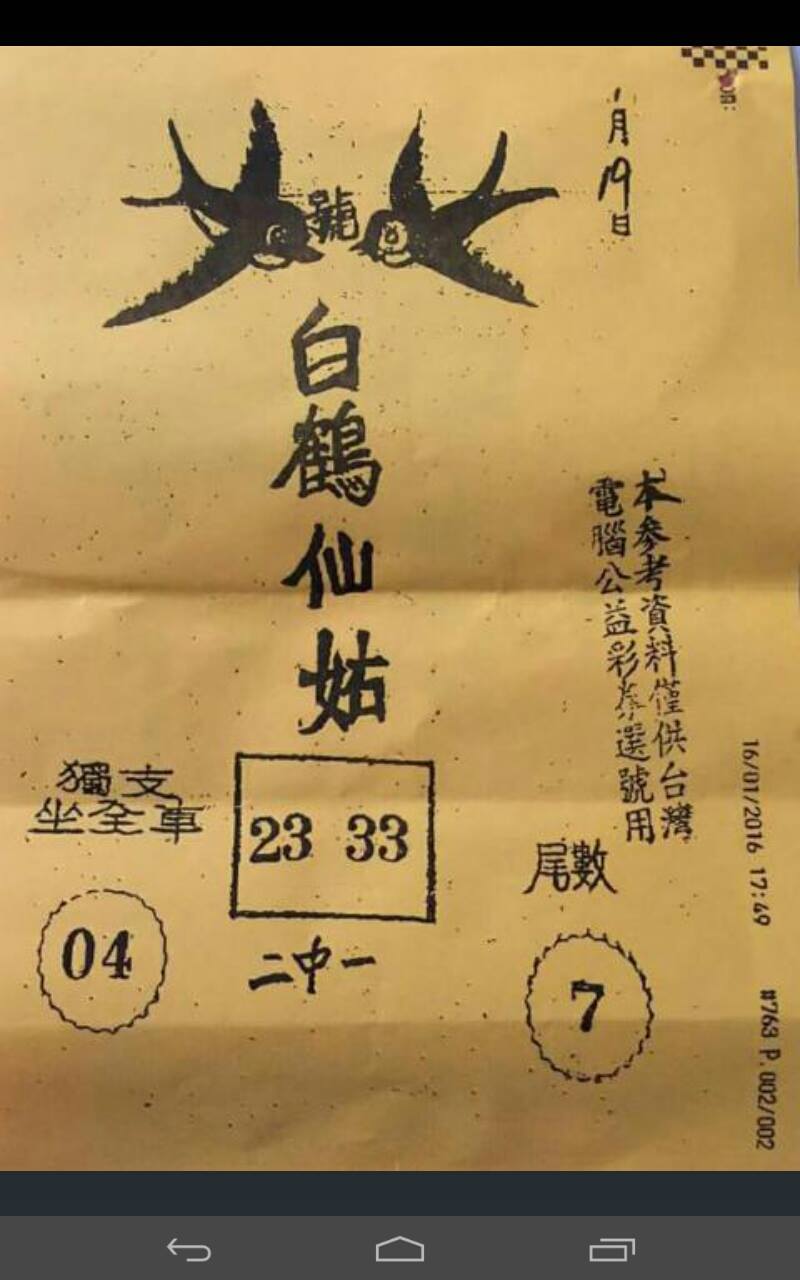 1月19日
號
白鶴仙姑
本參考資料僅供台灣
電腦公益彩券選號用
獨支
坐全車
04
23 33
二中一
尾數
7
16/01/2016 17:49
#763 P.002/002